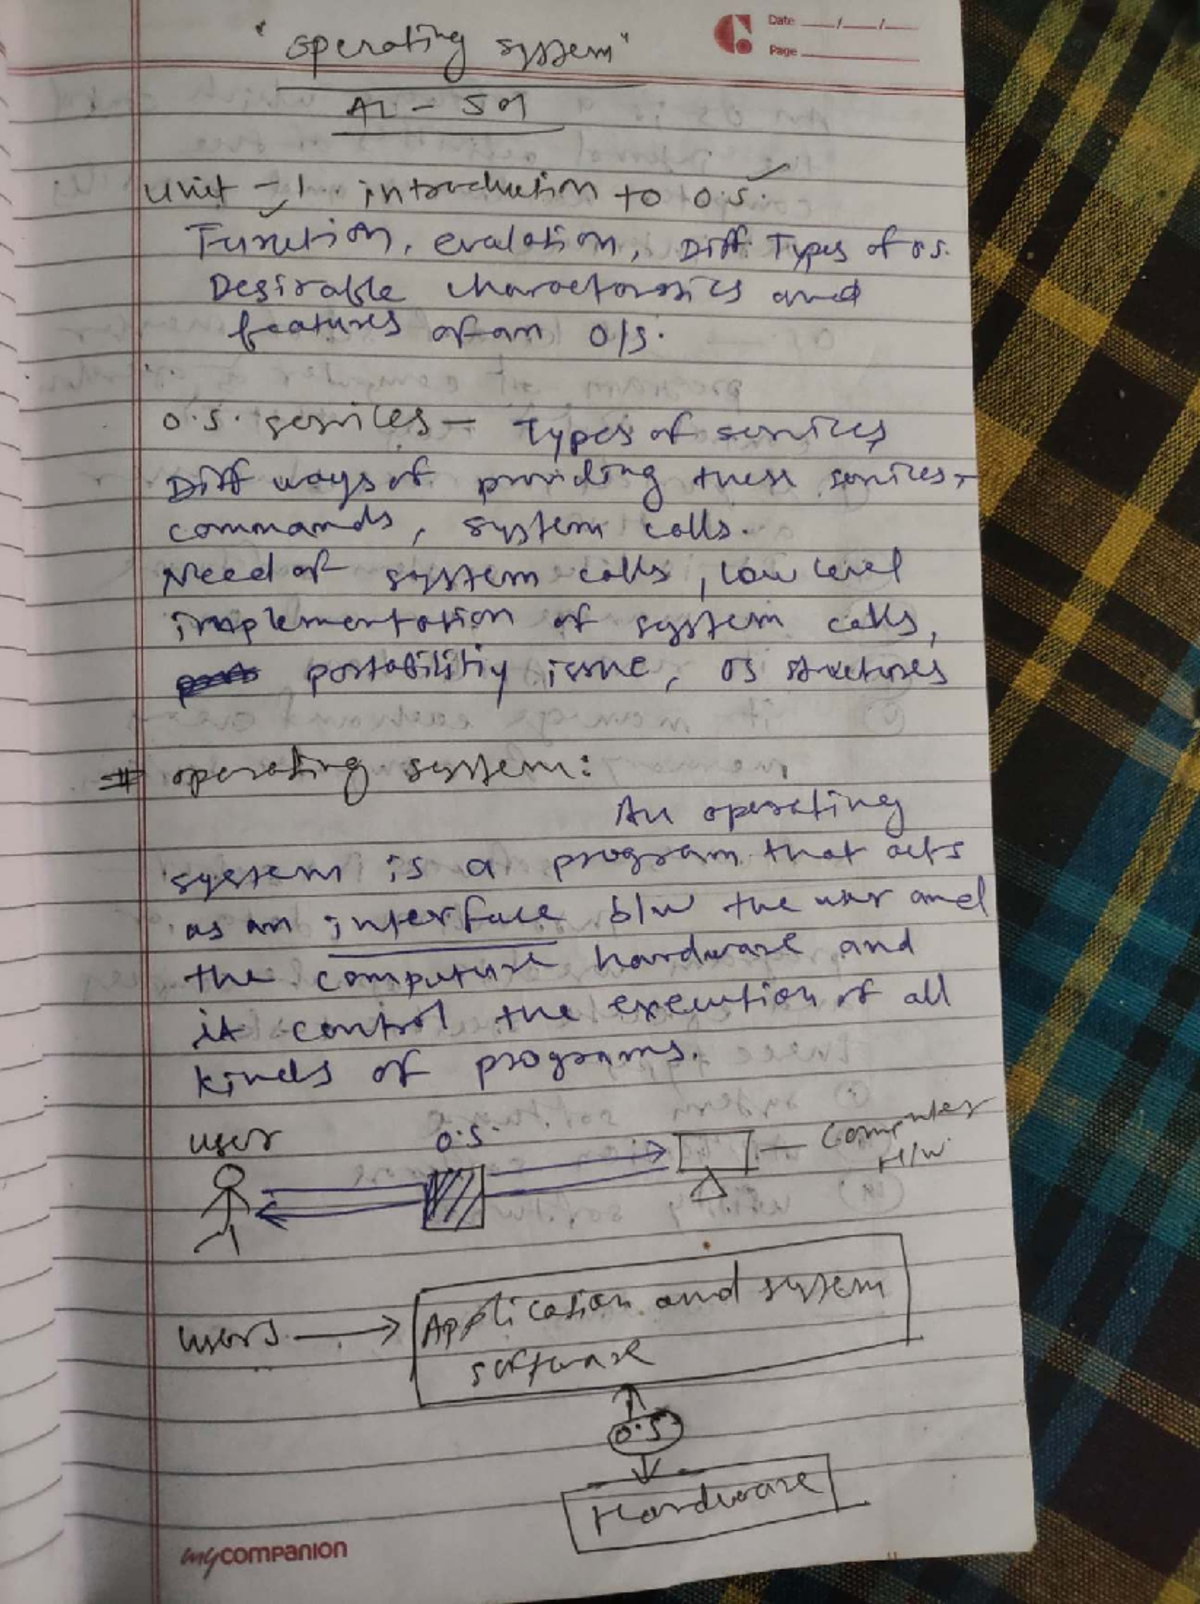 "operating system"
AL - 501
Date __/__/__
Page
Unit - 1. introduction to O.S.
Function, evalotion, Diff. Types of O.S.
Desirable charactorosics and
features of an O/S.
O.S. services - Types of services
Diff ways of providing these services -
commands, system calls.
Need of system calls, low level
implementation of system calls,
portability issue, OS structures
# operating system:
An operating
system is a program that acts
as an interface b/w the user and
the computure hardware and
it control the execution of all
kinds of programs.
user
O.S.
Computer
H/W
users
Application and system
software
O.S
Hardware
mycompanion